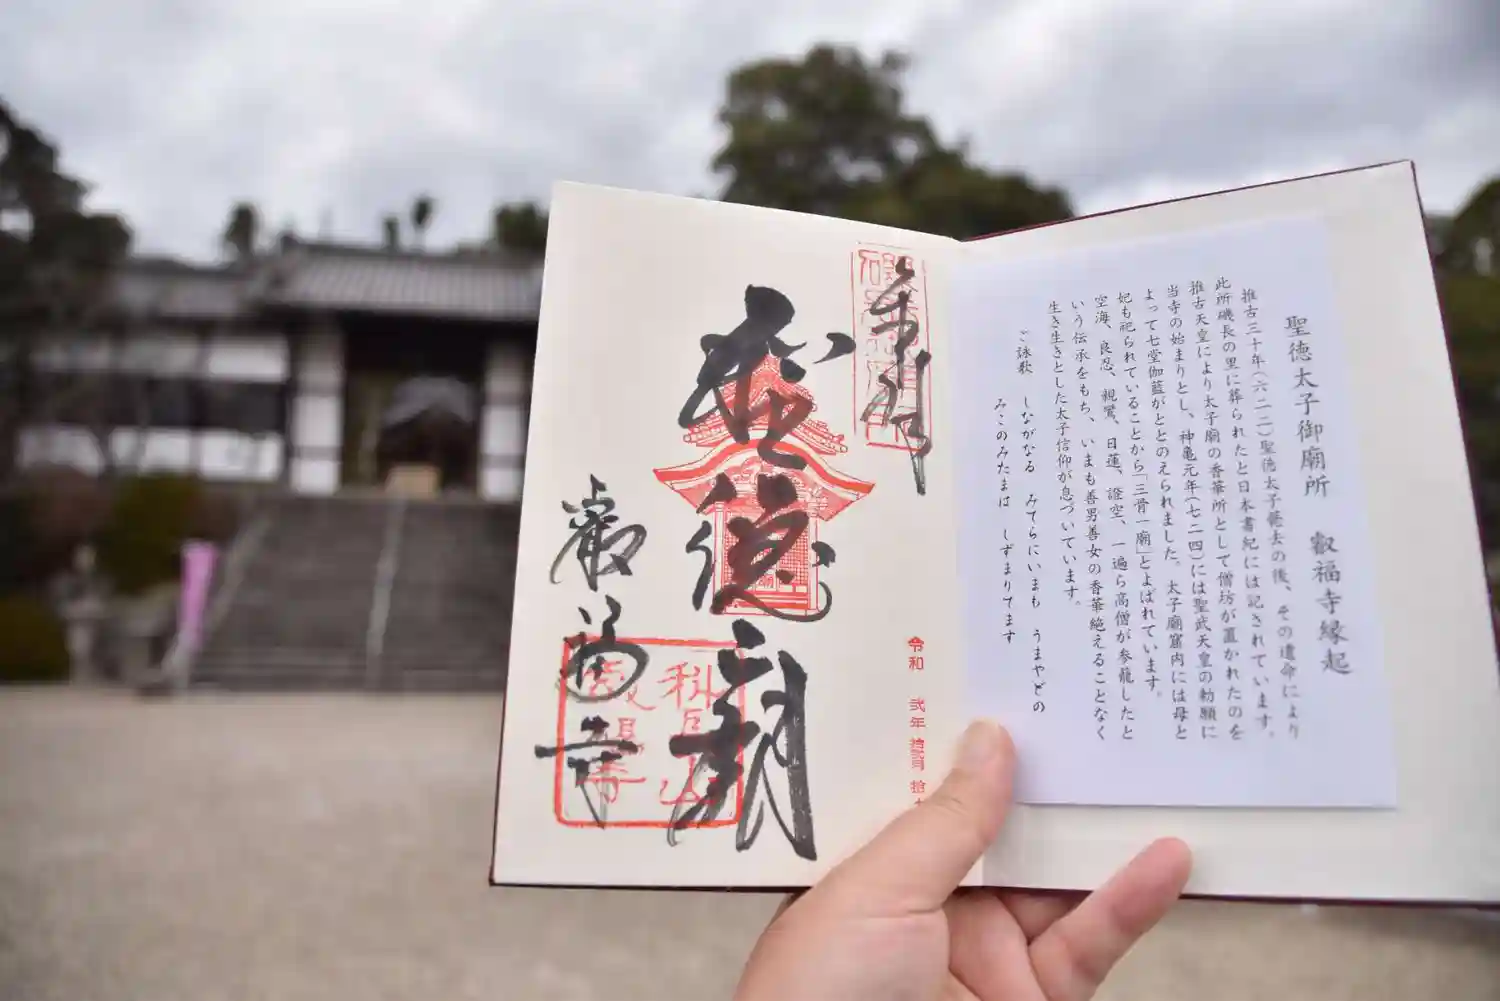 聖徳太子御廟所　叡福寺縁起
推古三十年(六二二)聖徳太子薨去の後、その遺命により
此所磯長の里に葬られたと日本書紀には記されています。
推古天皇により太子廟の香華所として僧坊が置かれたのを
当寺の始まりとし、神亀元年(七二四)には聖武天皇の勅願に
よって七堂伽藍がととのえられました。太子廟窟内には母と
妃も祀られていることから「三骨一廟」とよばれています。
空海、良忍、親鸞、日蓮、證空、一遍ら高僧が参籠したと
いう伝承をもち、いまも善男善女の香華絶えることなく
生き生きとした太子信仰が息づいています。
ご詠歌　しながなる　みてらにいまも　うまやどの
みこのみたまは　しずまりてます
奉拝
聖徳廟
叡福寺
令和　弐年　拾弐月　拾
科長山
叡福寺